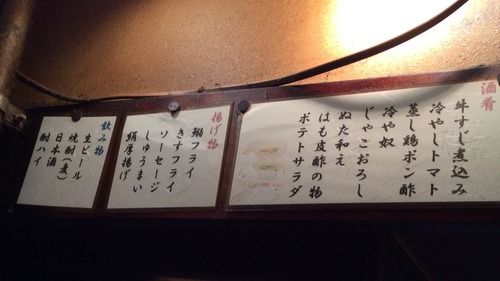 酒肴
牛すじ煮込み
冷やしトマト
蒸し鶏ポン酢
冷や奴
じゃこおろし
ぬた和え
はも皮酢の物
ポテトサラダ
揚げ物
鯵フライ
きすフライ
ソーセージ
しゅうまい
絹厚揚げ
飲み物
生ビール
焼酎(麦)
日本酒
酎ハイ